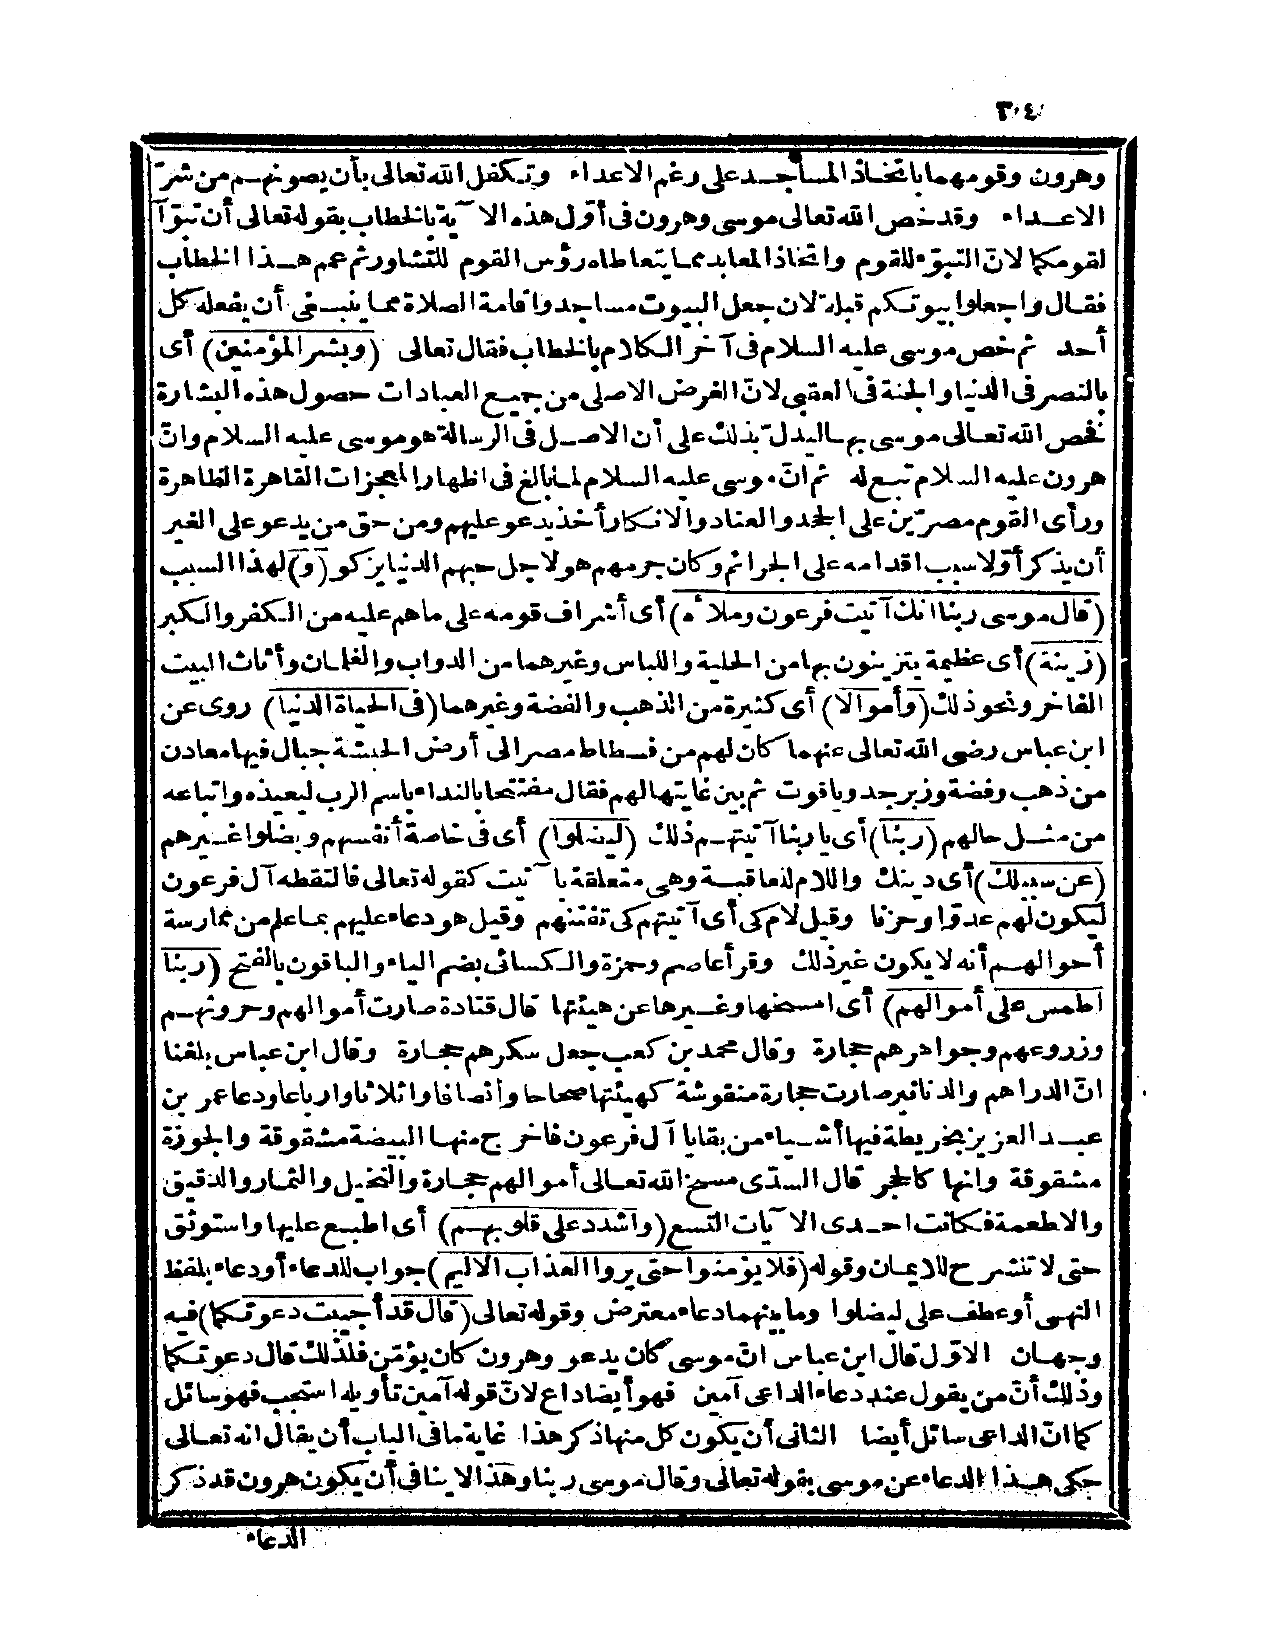 ٣٠٤
وهرون وقومهما باتخاذ المساجد على رغم الاعداء وتكفل الله تعالى بأن يصونهم من شرّ
الاعداء وقد خص الله تعالى موسى وهرون فى أوّل هذه الآية بالخطاب بقوله تعالى أن تبوّآ
لقومكما لانّ التبوّء للقوم واتخاذ المعابد مما يتعاطاه رؤس القوم للتشاور ثم عمم هذا الخطاب
فقال واجعلوا بيوتكم قبلة لان جعل البيوت مساجد واقامة الصلاة مما ينبغى أن يفعله كل
أحد ثم خص موسى عليه السلام فى آخر الكلام بالخطاب فقال تعالى (وبشر المؤمنين) أى
بالنصر فى الدنيا والجنة فى العقبى لانّ الغرض الاصلى من جميع العبادات حصول هذه البشارة
فخص الله تعالى موسى بها ليدل بذلك على أن الاصل فى الرسالة هو موسى عليه السلام وانّ
هرون عليه السلام تبع له ثم انّ موسى عليه السلام لما بالغ فى اظهار المعجزات القاهرة الظاهرة
ورأى القوم مصرّين على الجحد والعناد والانكار أخذ يدعو عليهم ومن حق من يدعو على الغير
أن يذكر أوّلا سبب اقدامه على الجرائم وكان جرمهم هو لاجل حبهم الدنيا يزكو (و) لهذا السبب
(قال موسى ربنا انك آتيت فرعون وملأه) أى أشراف قومه على ما هم عليه من الكفر والكبر
(زينة) أى عظيمة يتزينون بها من الحلية واللباس وغيرهما من الدواب والغلمان وأثاث البيت
الفاخر ونحو ذلك (وأموالا) أى كثيرة من الذهب والفضة وغيرهما (فى الحياة الدنيا) روى عن
ابن عباس رضى الله تعالى عنهما كان لهم من فسطاط مصر الى أرض الحبشة جبال فيها معادن
من ذهب وفضة وزبرجد وياقوت ثم بين غايتها لهم فقال مفتتحا بالنداء باسم الرب ليعيذه واتباعه
من مثل حالهم (ربنا) أى يا ربنا آتيتهم ذلك (ليضلوا) أى فى خاصة أنفسهم ويضلوا غيرهم
(عن سبيلك) أى دينك واللام للعاقبة وهى متعلقة بآتيت كقوله تعالى فالتقطه آل فرعون
ليكون لهم عدوّا وحزنا وقيل لام كى أى آتيتهم كى تفتنهم وقيل هو دعاء عليهم بما علم من ممارسة
أحوالهم أنه لا يكون غير ذلك وقرأ عاصم وحمزة والكسائى بضم الياء والباقون بالفتح (ربنا
اطمس على أموالهم) أى امسخها وغيرها عن هيئتها قال قتادة صارت أموالهم وحروثهم
وزروعهم وجواهرهم حجارة وقال محمد بن كعب جعل سكرهم حجارة وقال ابن عباس بلغنا
انّ الدراهم والدنانير صارت حجارة منقوشة كهيئتها صحاحا وأنصافا واثلاثا وارباعا ودعا عمر بن
عبد العزيز بخريطة فيها أشياء من بقايا آل فرعون فاخرج منها البيضة مشقوقة والجوزة
مشقوقة وانها كالحجر قال السدّى مسخ الله تعالى أموالهم حجارة والنخيل والثمار والدقيق
والاطعمة فكانت احدى الآيات التسع (واشدد على قلوبهم) أى اطبع عليها واستوثق
حتى لا تنشرح للايمان وقوله (فلا يؤمنوا حتى يروا العذاب الاليم) جواب للدعاء أو دعاء بلفظ
النهى أو عطف على ليضلوا وما بينهما دعاء معترض وقوله تعالى (قال قد أجيبت دعوتكما) فيه
وجهان الاوّل قال ابن عباس انّ موسى كان يدعو وهرون كان يؤمّن فلذلك قال دعوتكما
وذلك أنّ من يقول عند دعاء الداعى آمين فهو أيضا داع لانّ قوله آمين تأويله استجب فهو سائل
كما انّ الداعى سائل أيضا الثانى أن يكون كل منهما ذكر هذا غاية ما فى الباب أن يقال انه تعالى
حكى هذا الدعاء عن موسى بقوله تعالى وقال موسى ربنا وهذا لا ينافى أن يكون هرون قد ذكر
الدعاء